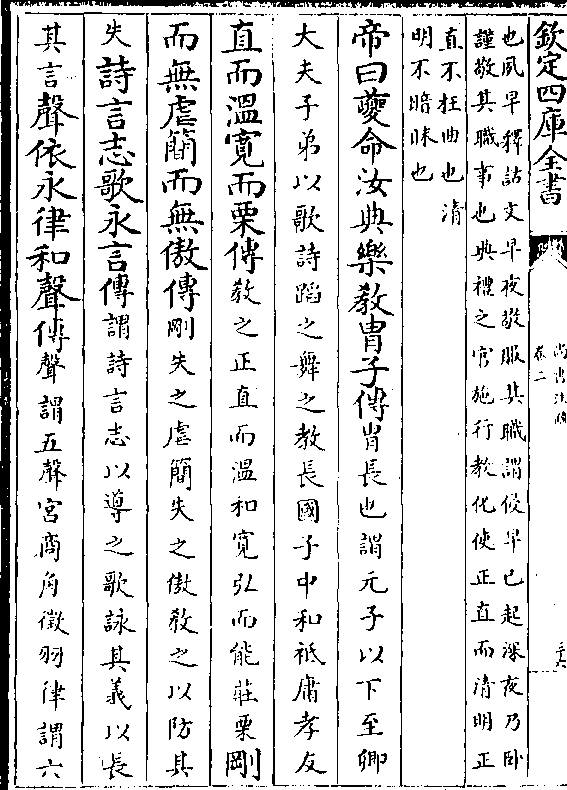 欽定四庫全書
尚書注疏
卷二
三六
也夙早釋詁文早夜敬服其職謂侵早已起深夜乃卧
謹敬其職事也典禮之官施行教化使正直而清明正
直不枉曲也清
明不暗昧也
帝曰夔命汝典樂教胄子傳胄長也謂元子以下至卿
大夫子弟以歌詩蹈之舞之教長國子中和祗庸孝友
直而溫寛而栗傳教之正直而溫和寛弘而能莊栗剛
而無虐簡而無傲傳剛失之虐簡失之傲教之以防其
失詩言志歌永言傳謂詩言志以導之歌詠其義以長
其言聲依永律和聲傳聲謂五聲宮商角徵羽律謂六